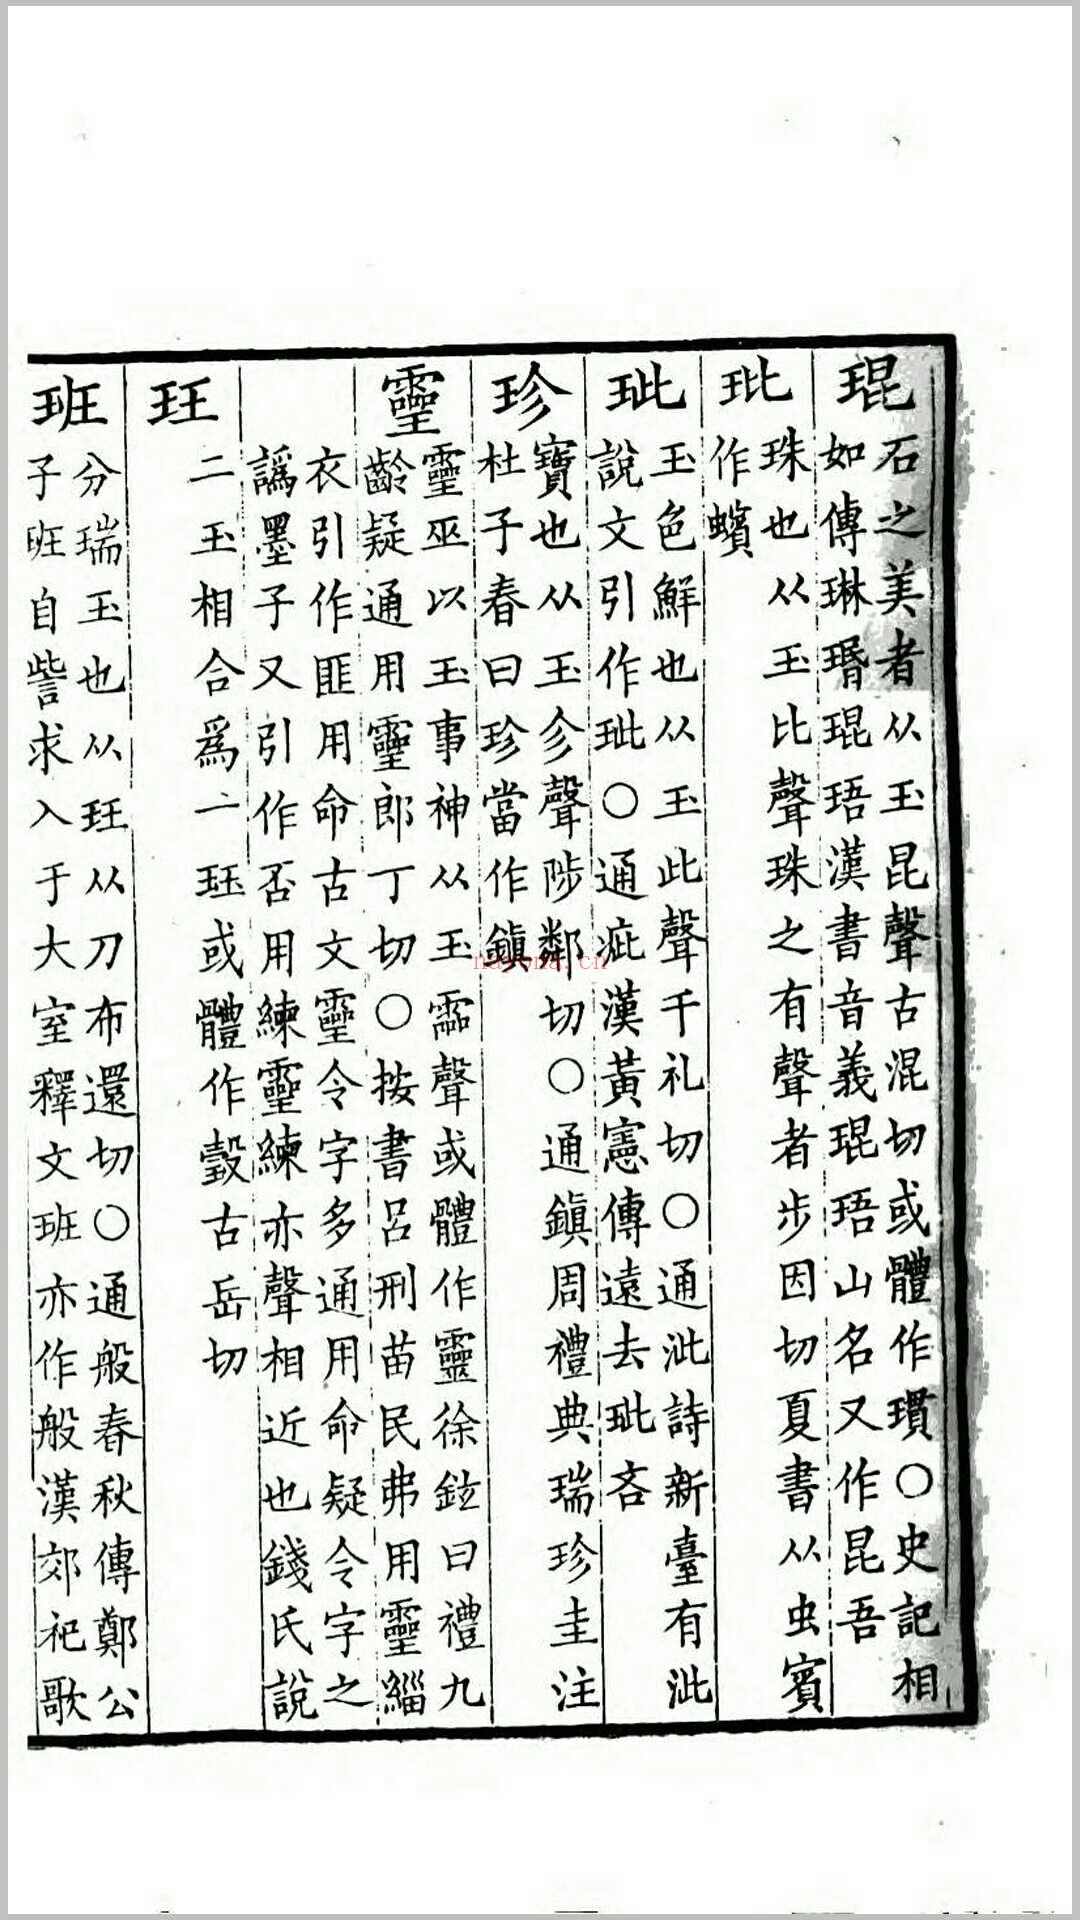 琨
石之美者从玉昆聲古混切或體作瑻〇史記相
如傳琳瑉琨珸漢書音義琨珸山名又作昆吾
玭
珠也从玉比聲珠之有聲者步因切夏書从虫賓
作蠙
玼
玉色鮮也从玉此聲千礼切〇通泚詩新臺有泚
說文引作玼〇通疵漢黃憲傳遠去玼吝
珍
寶也从玉㐱聲陟鄰切〇通鎭周禮典瑞珍圭注
杜子春曰珍當作鎭
靈
靈巫以玉事神从玉霝聲或體作靈徐鉉曰禮九
齡疑通用靈郎丁切〇按書呂刑苗民弗用靈緇
衣引作匪用命古文靈令字多通用命疑令字之
譌墨子又引作否用練靈練亦聲相近也錢氏說
玨
二玉相合爲一玨或體作㲄古岳切
班
分瑞玉也从玨从刀布還切〇通般春秋傳鄭公
子班自訾求入于大室釋文班亦作般漢郊祀歌
nayona.cn